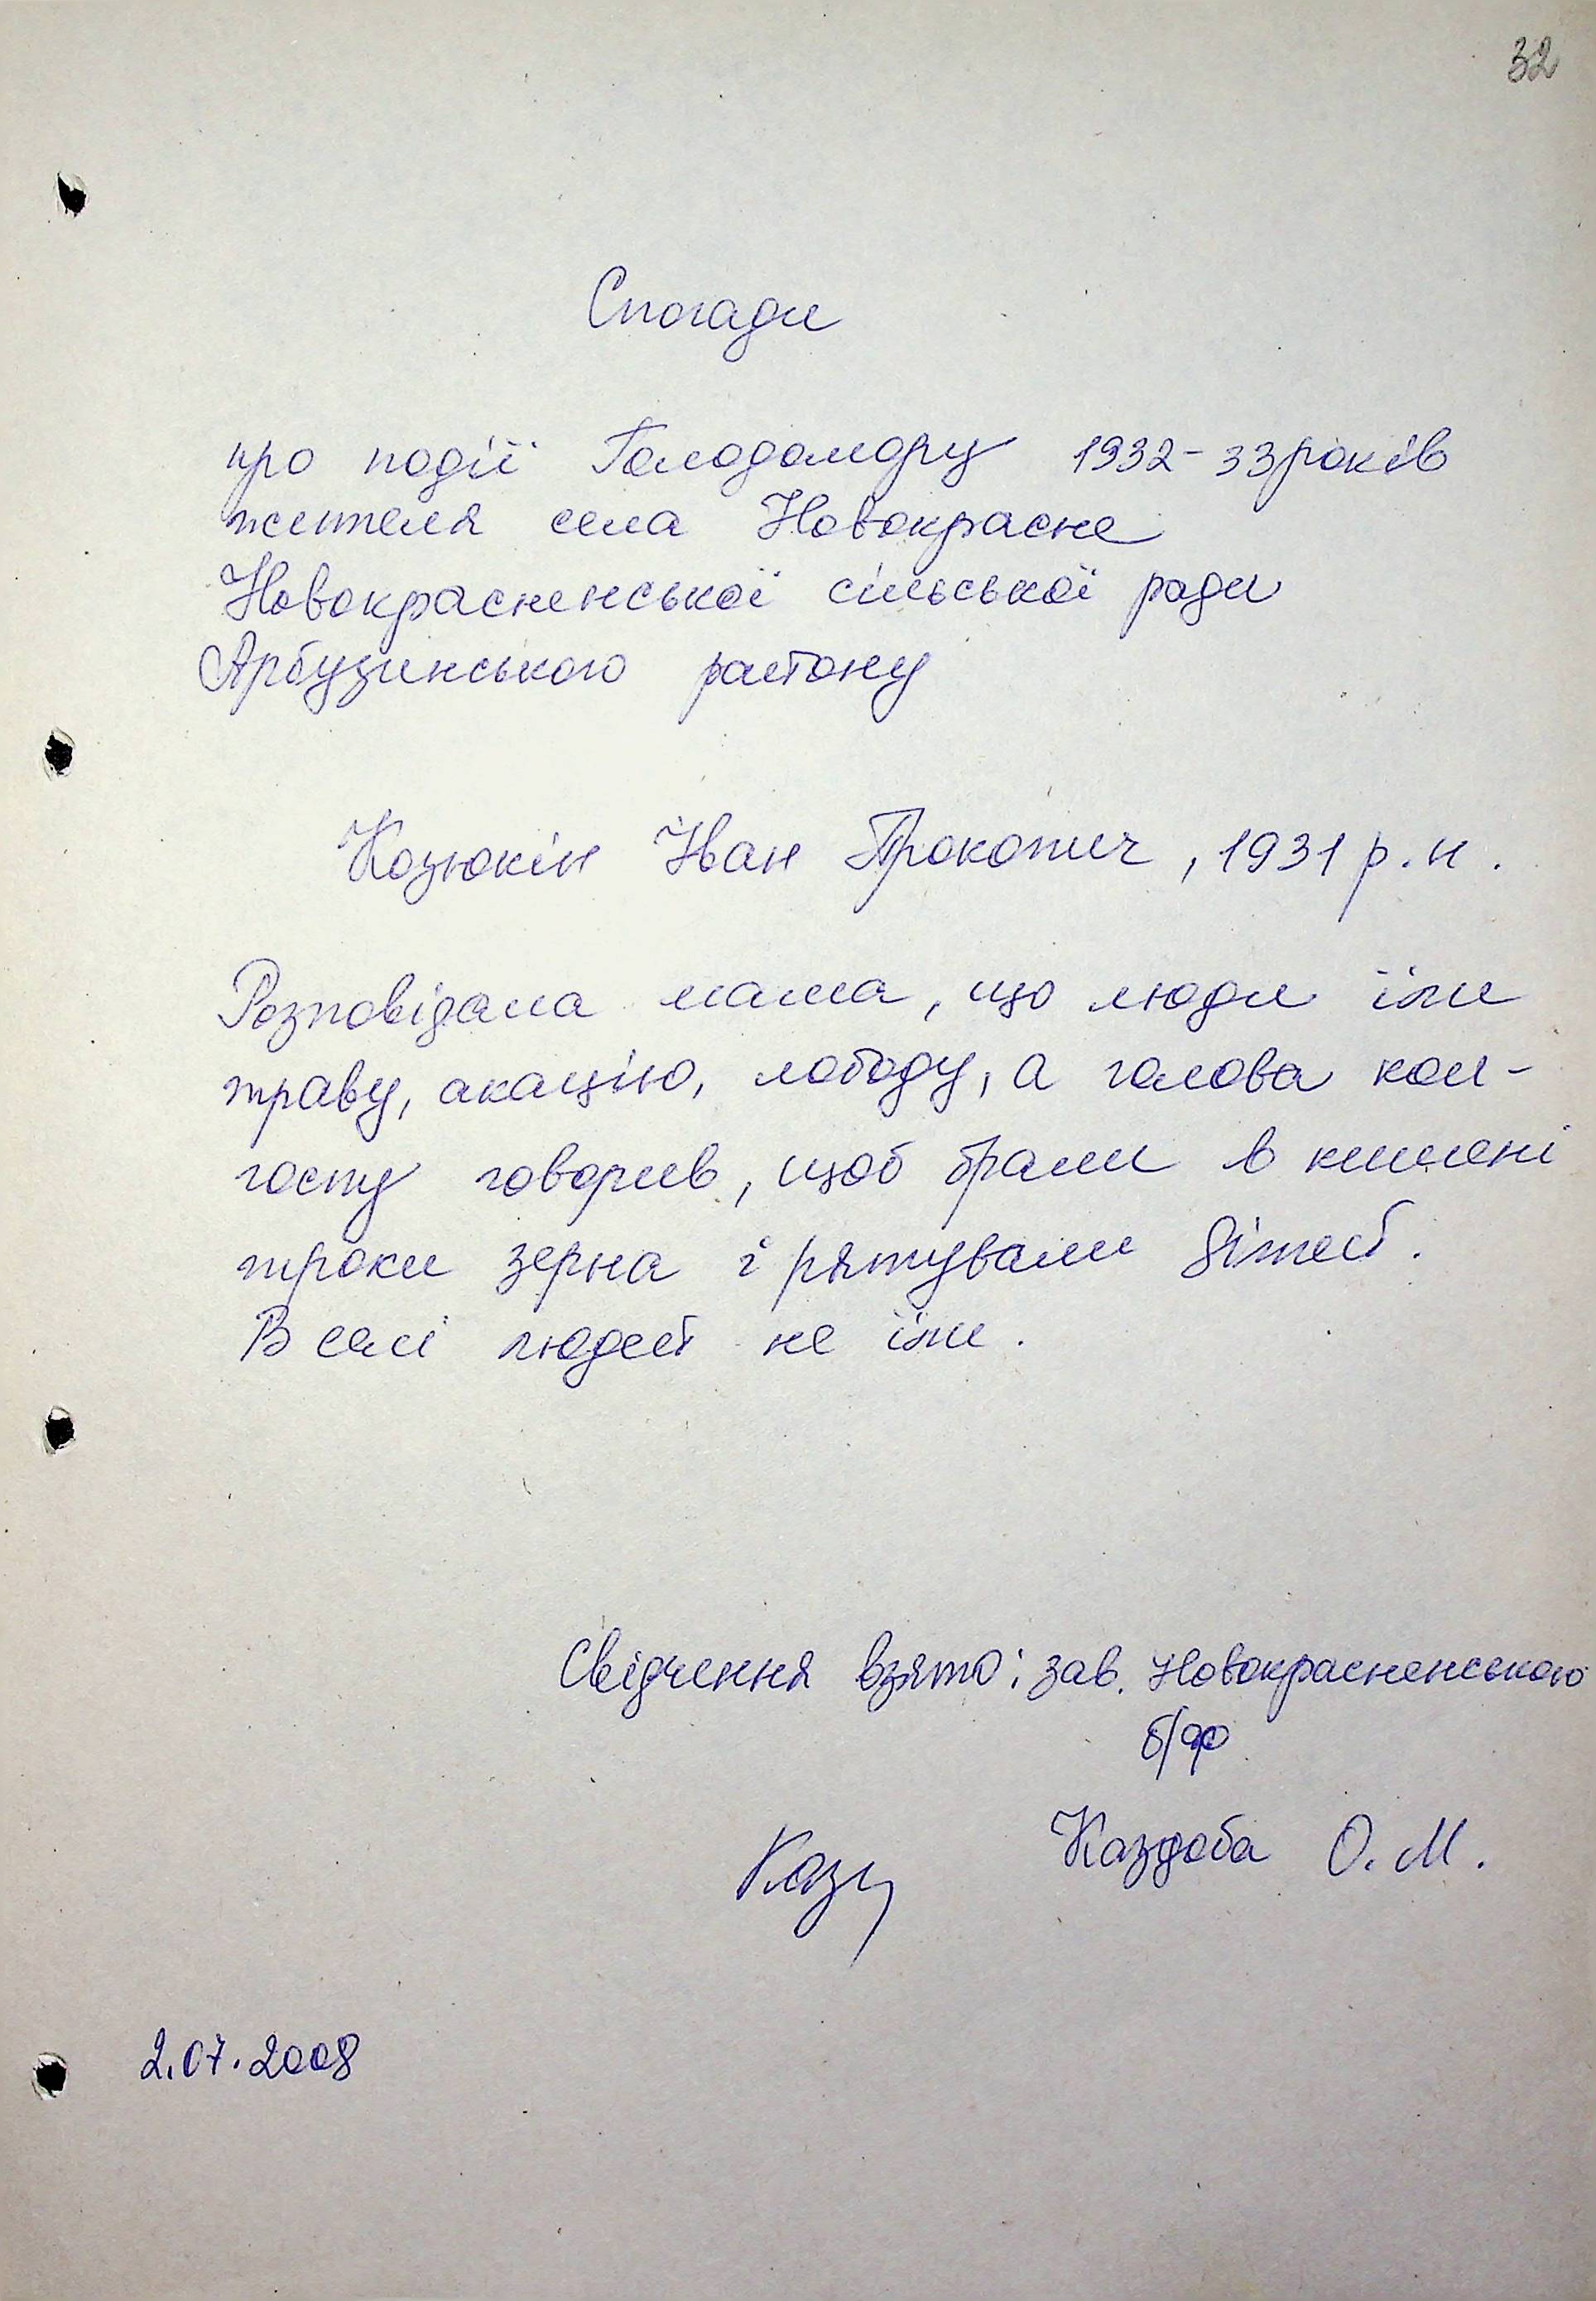 32
Спогади
про події Голодомору 1932-33 років
жителя села Новокрасне
Новокрасненської сільської ради
Арбузинського району
Козюкін Іван Прокопич, 1931 р.н.
Розповідала мама, що люди їли
траву, акацію, лободу, а голова кол-
госпу говорив, щоб брали в кишені
трохи зерна і рятували дітей.
В селі людей не їли.
Свідчення взято: зав. Новокрасненського
б/ф
Каздоба О.М.
2.07.2008